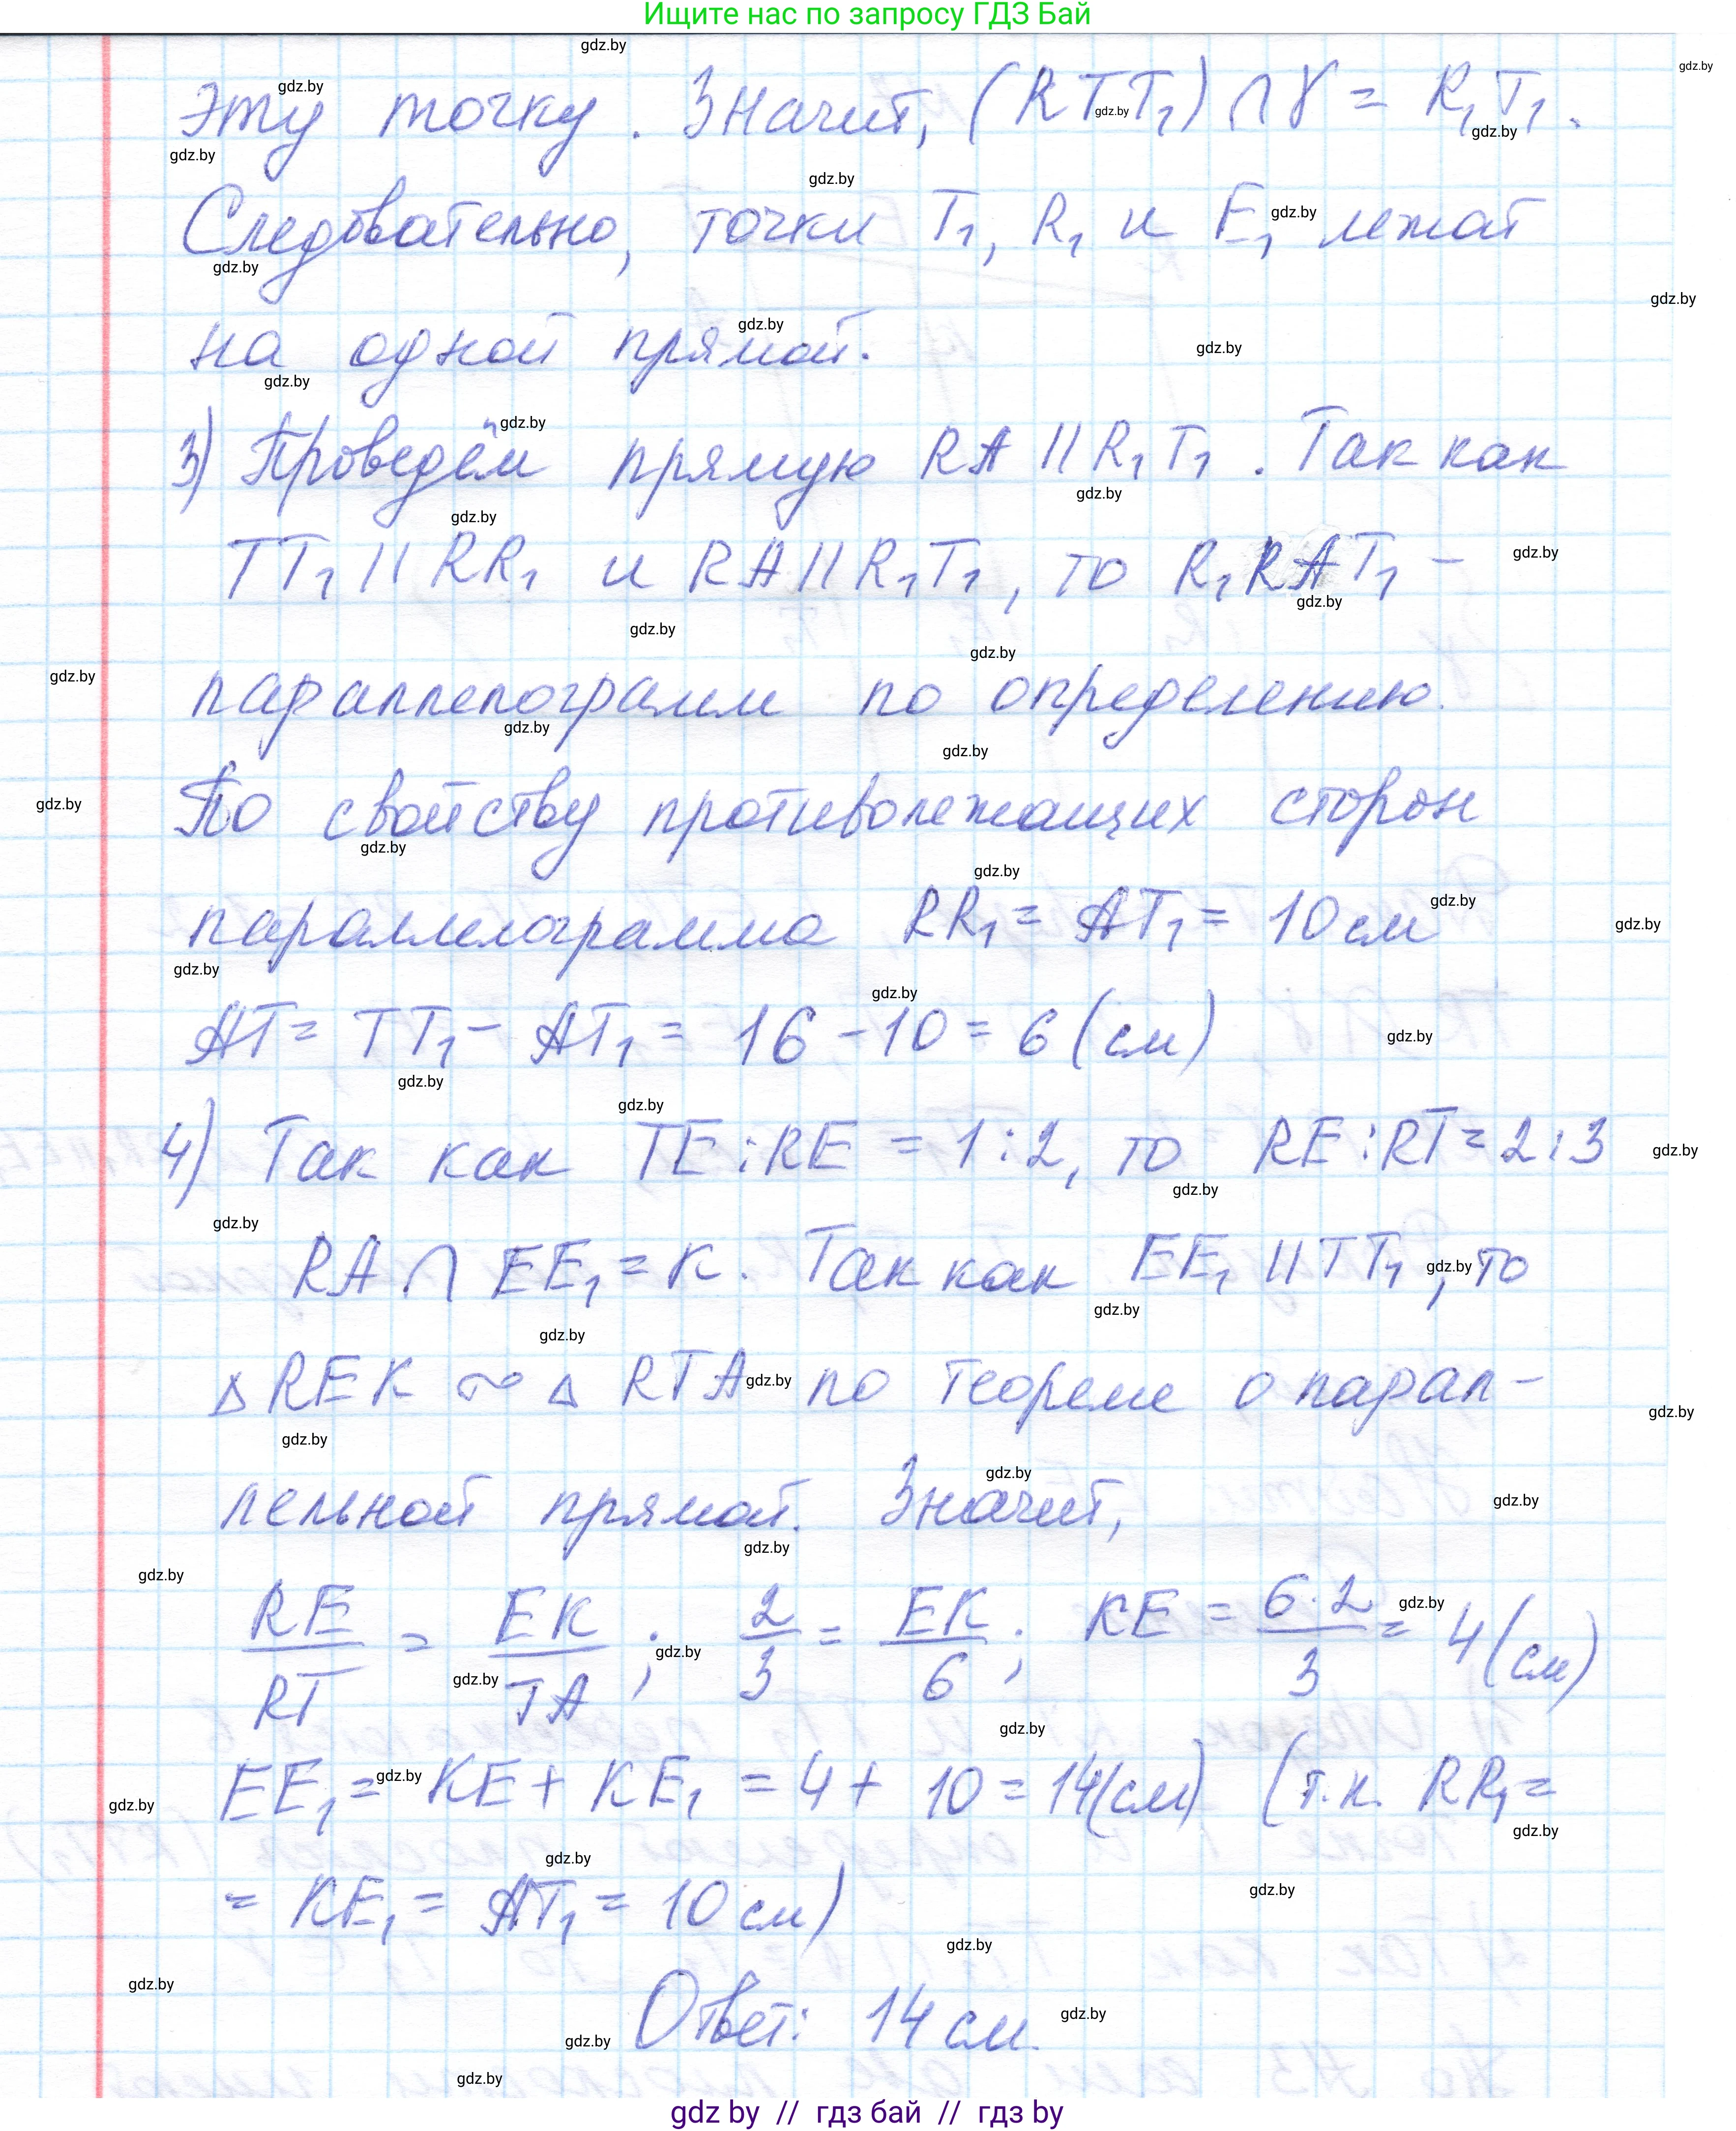 Ищите нас по запросу ГДЗ Бай
эту точку. Значит, (RTT₁) ∩ γ = R₁T₁.
Следовательно, точки T₁, R₁ и E₁ лежат
на одной прямой.
3) Проведём прямую RA || R₁T₁. Так как
TT₁ || RR₁ и RA || R₁T₁, то R₁RAT₁ –
параллелограмм по определению.
По свойству противолежащих сторон
параллелограмма RR₁ = AT₁ = 10 см
AT = TT₁ – AT₁ = 16 – 10 = 6 (см)
4) Так как TE : RE = 1 : 2, то RE : RT = 2 : 3
RA ∩ EE₁ = K. Так как EE₁ || TT₁, то
△ REK ~ △ RTA по теореме о парал-
лельной прямой. Значит,
RE/RT = EK/TA; 2/3 = EK/6; KE = 6·2/3 = 4 (см)
EE₁ = KE + KE₁ = 4 + 10 = 14 (см) (т.к. RR₁ =
= KE₁ = AT₁ = 10 см)
Ответ: 14 см.
gdz by // гдз бай // гдз by